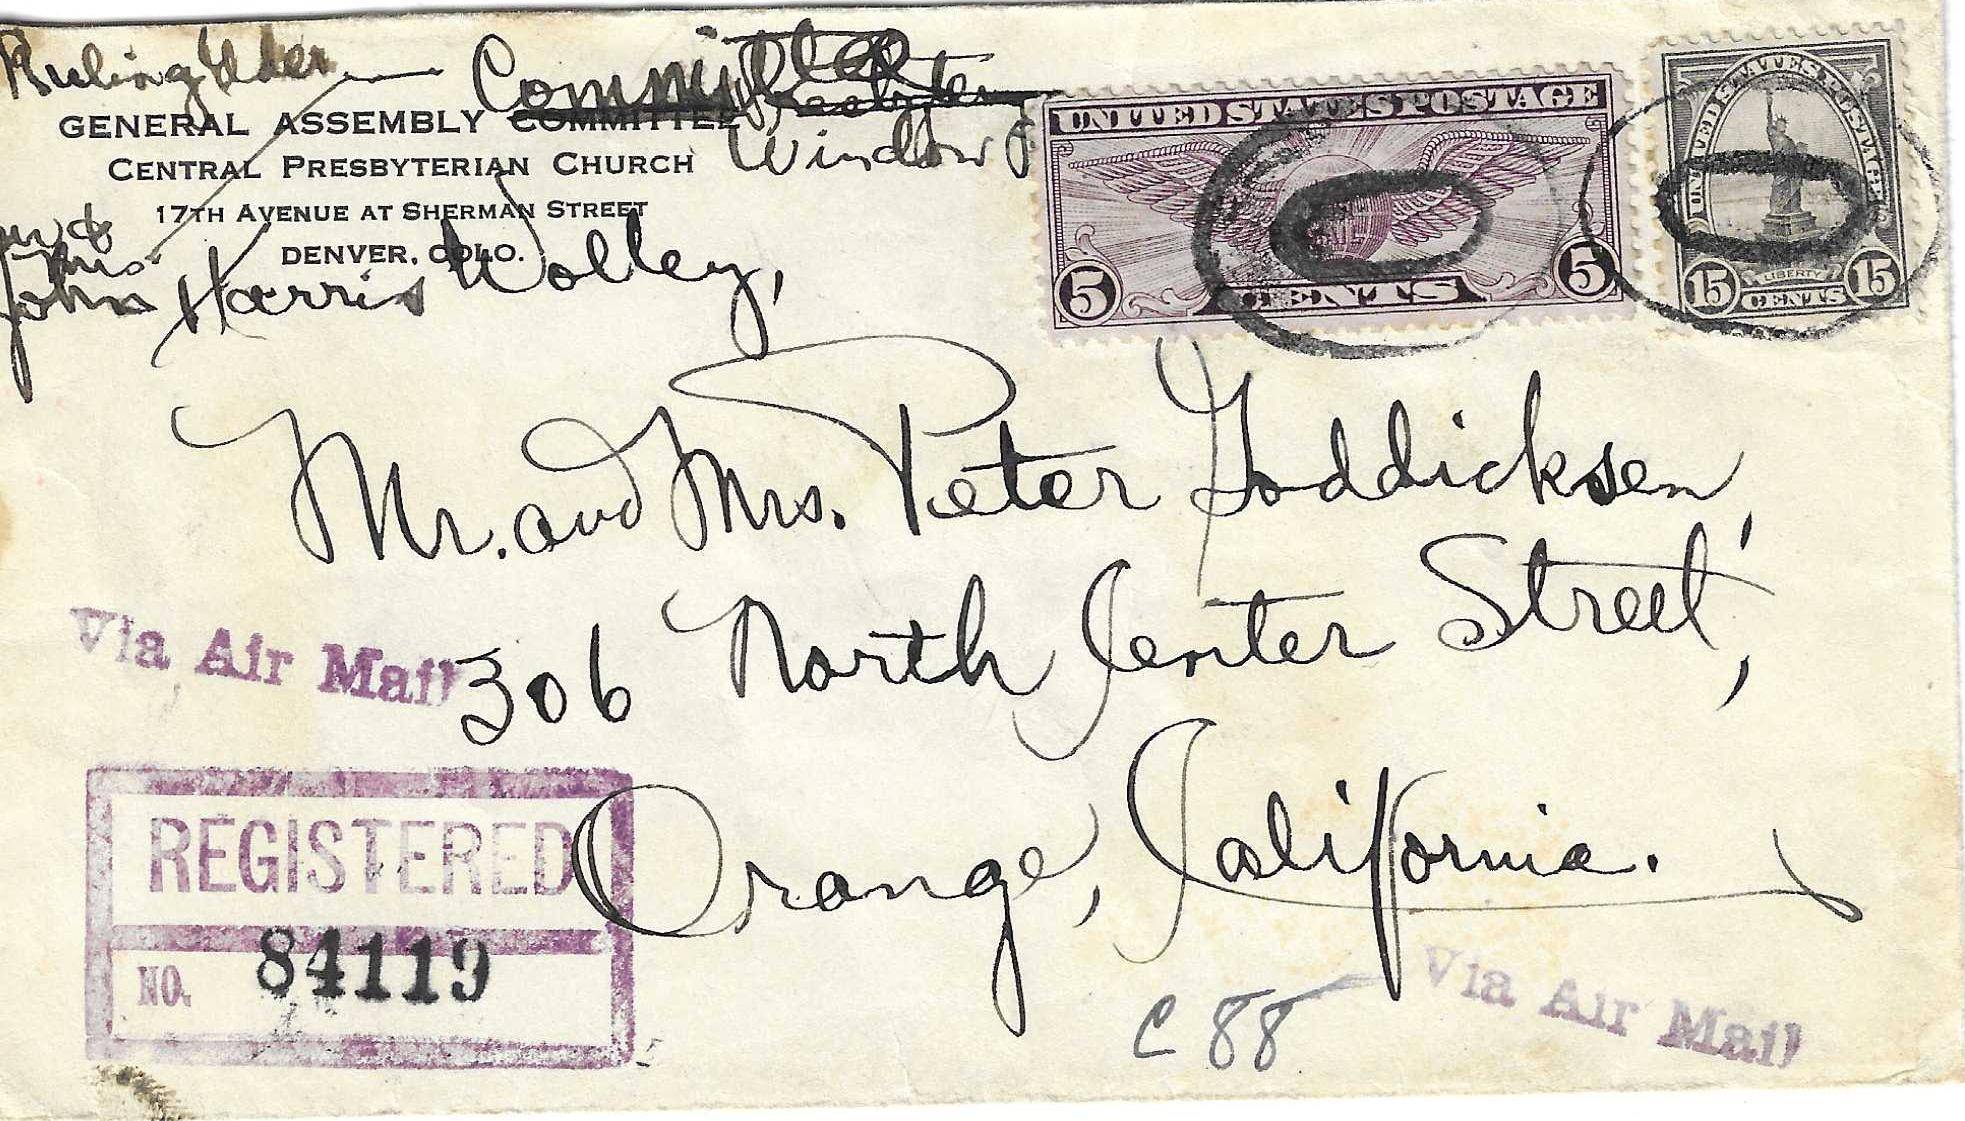 Ruling Elder — Committee
GENERAL ASSEMBLY COMMITTEE
Window
CENTRAL PRESBYTERIAN CHURCH
17TH AVENUE AT SHERMAN STREET
DENVER, COLO.
Mrs.
John Harris Wolley,
UNITED STATES POSTAGE
5 CENTS 5
UNITED STATES POSTAGE
LIBERTY
15 CENTS 15
Mr. and Mrs. Peter Goddicksen,
306 North Center Street,
Orange, California.
Via Air Mail
REGISTERED
NO. 84119
C 88
Via Air Mail